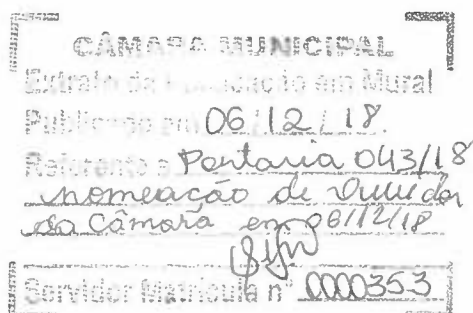 CÂMARA MUNICIPAL
Extrato da Publicação em Mural
Publicado em 06/12/18
Referente a Portaria 043/18
nomeação de Ouvidor
da Câmara em 06/12/18
Servidor Matrícula nº 0000353